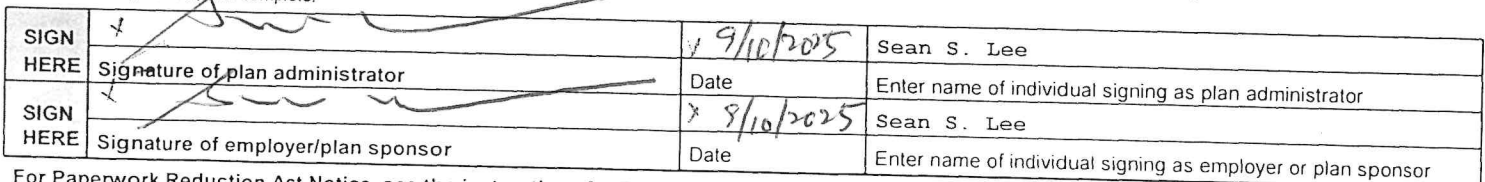 SIGN HERE x 9/10/2025 Sean S. Lee
Signature of plan administrator Date Enter name of individual signing as plan administrator
SIGN HERE x 9/10/2025 Sean S. Lee
Signature of employer/plan sponsor Date Enter name of individual signing as employer or plan sponsor
For Paperwork Reduction Act Notice, see the